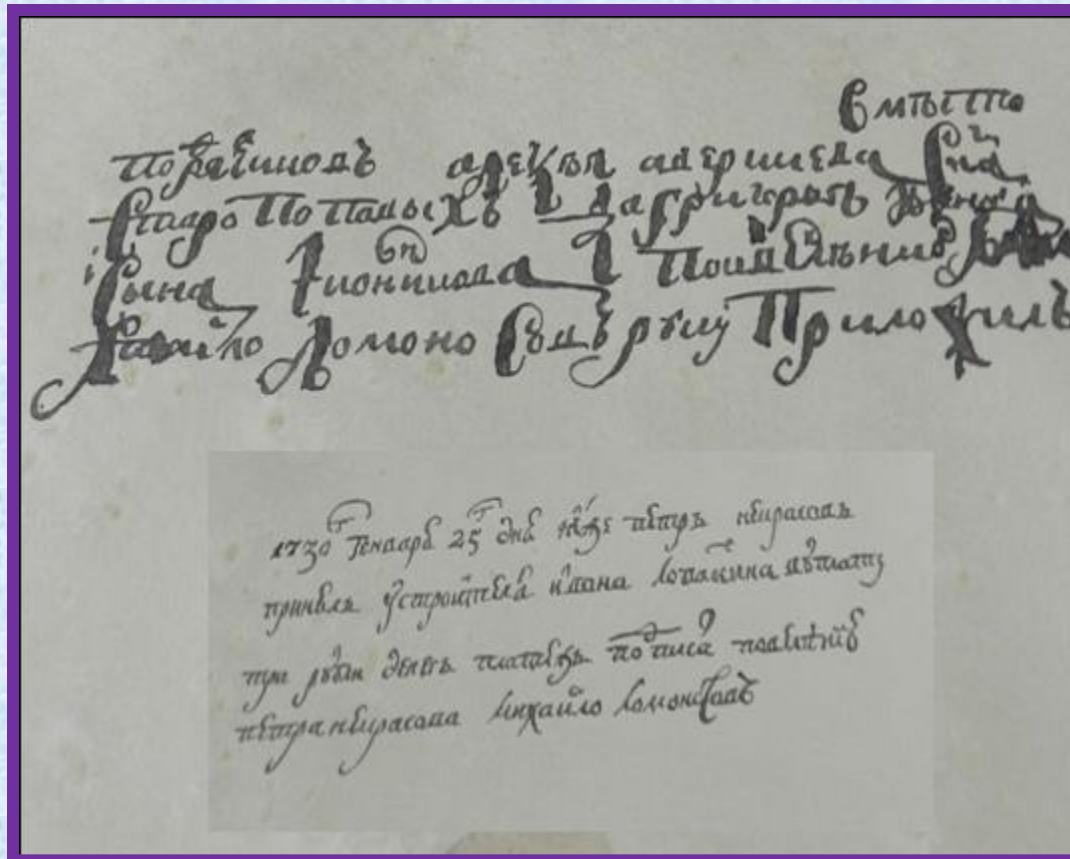 вмѣсто
подрятчиковъ алеѯѣя аверкиева сна
Старопоповыхъ да григорья иванова
сына иконникова по ихъ велѣнию
михайло Ломоносовъ руку Приложилъ
1730 генваря 25 дня петръ некрасовъ
принелъ устроителя ивана
три рубли денегъ платежъ подписа повелѣнию
петра некрасова михайло ломоносовъ